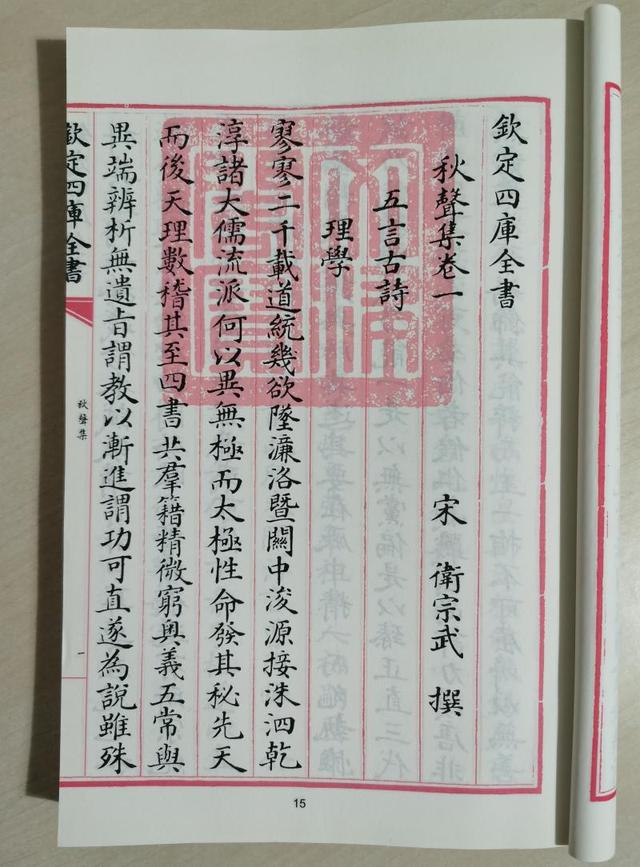 欽定四庫全書
秋聲集卷一
宋 衛宗武 撰
五言古詩
理學
寥寥二千載道統幾欲墜濂洛暨關中浚源接洙泗乾
淳諸大儒流派何以異無極而太極性命發其秘先天
而後天理數稽其至四書共羣籍精微窮奥義五常與
異端辨析無遺旨謂教以漸進謂功可直遂為說雖殊
欽定四庫全書
秋聲集
一
15